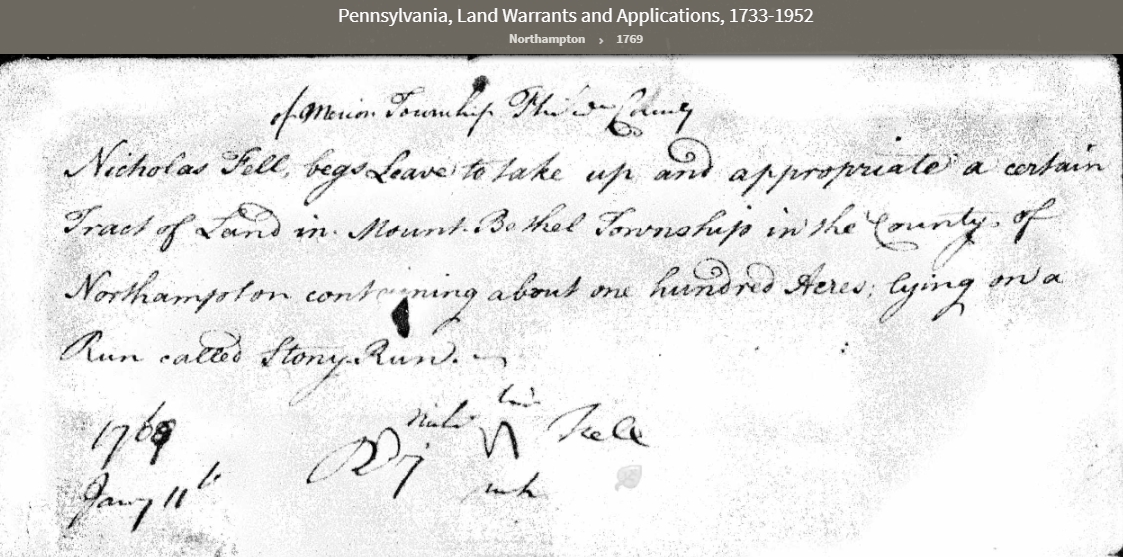 Pennsylvania, Land Warrants and Applications, 1733-1952
Northampton › 1769
of Merion Township Philada County
Nicholas Fell, begs Leave to take up and appropriate a certain
Tract of Land in Mount Bethel Township in the County of
Northampton containing about one hundred Acres; lying on a
Run called Stony Run.
his
1769
Nichs N Fell
Jany 11th
mark